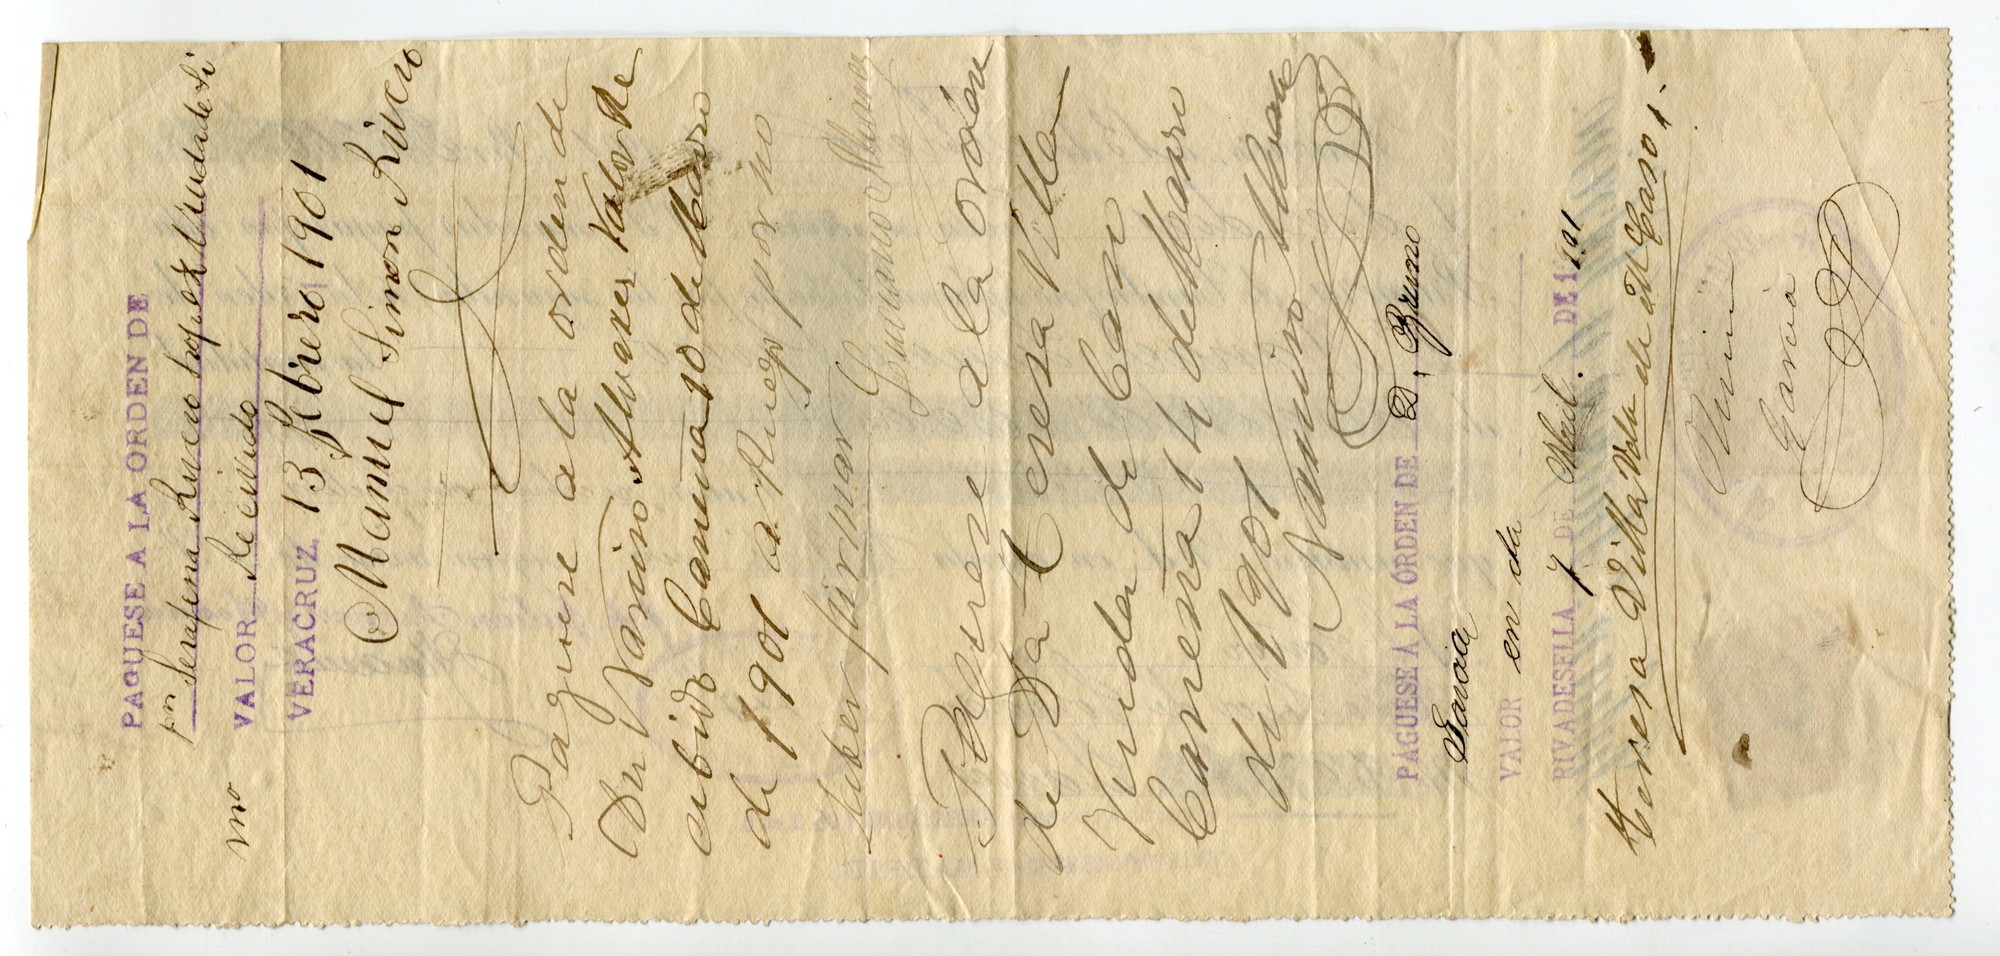 PAGUESE A LA ORDEN DE
Dn Serafina Rivero Lopez
VALOR Recivido
VERACRUZ 13 Febrero 1901
Manuel Simon Rivero
Paguese a la orden de
Dn Narciso Alvarez Valor Re
cibido Carreña 10 de Marzo
de 1901 a Ruego por no
saber firmar
Luciano Alvarez
Paguese a la orden
de Da Teresa Villa
Viuda de Caso
Carreña 14 de Marzo
de 1901
Narciso Alvarez
PÁGUESE Á LA ÓRDEN DE D. Bruno
Garcia
VALOR en da
RIVADESELLA 7 DE Abril. DE 1901
Teresa Villa Vda de Caso
Garcia